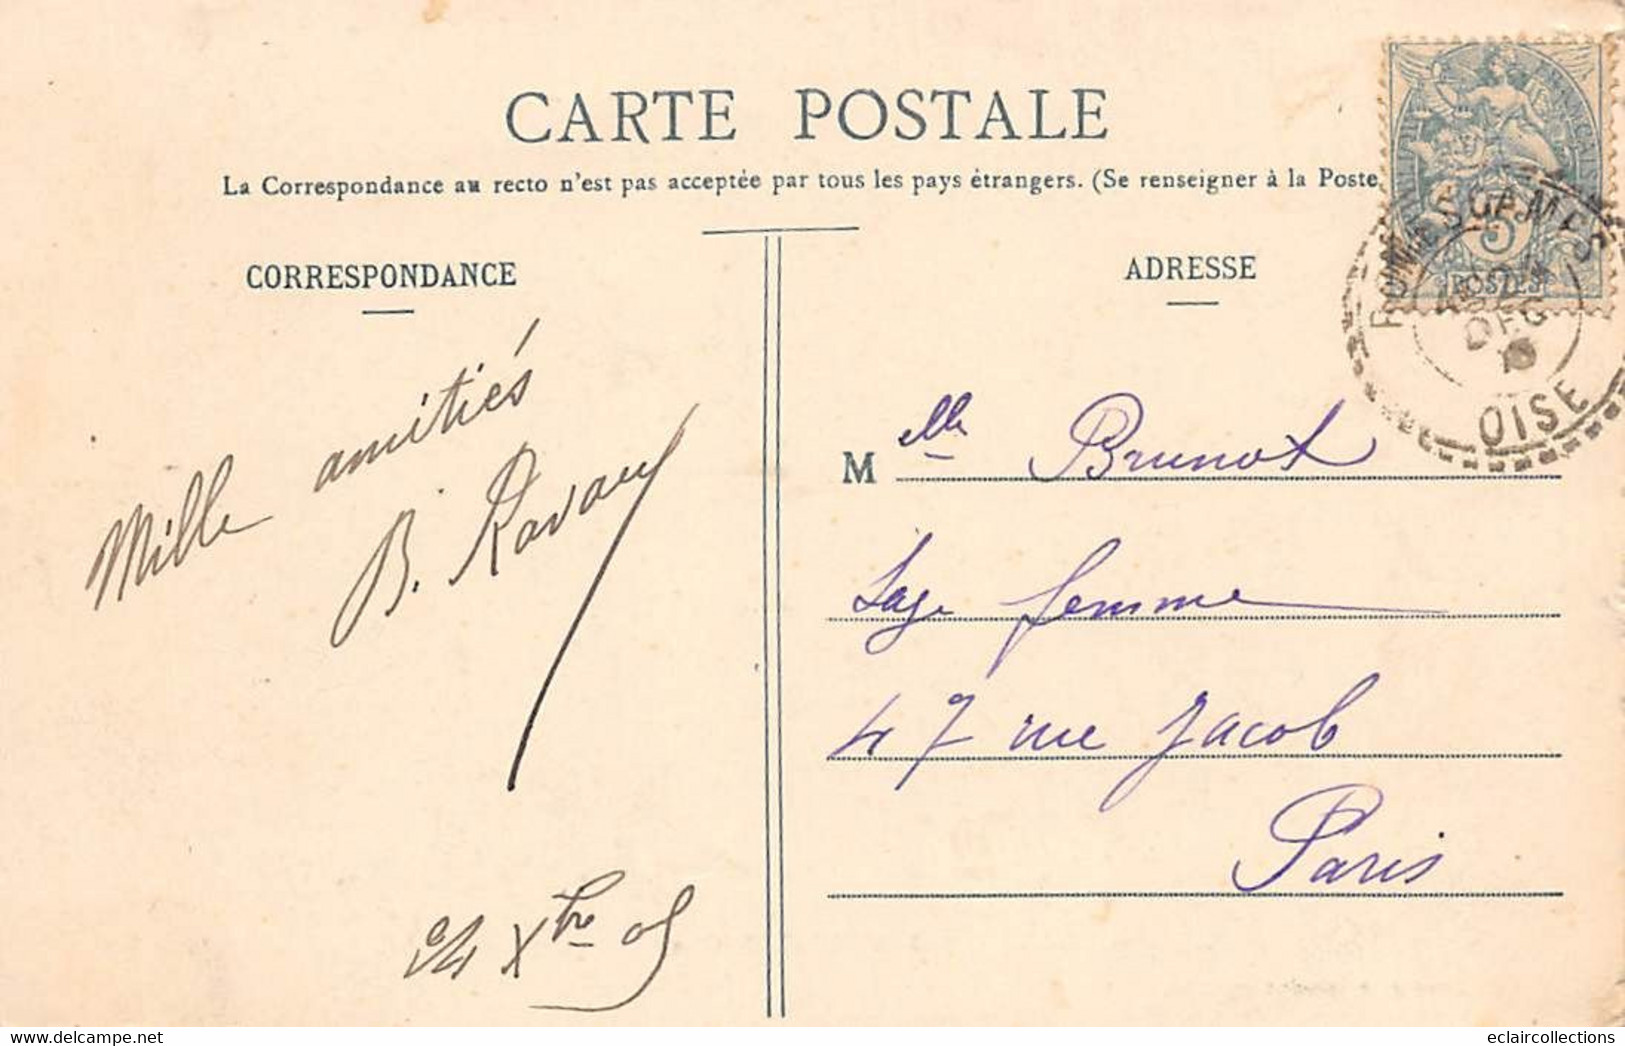 CARTE POSTALE
La Correspondance au recto n'est pas acceptée par tous les pays étrangers. (Se renseigner à la Poste
CORRESPONDANCE
ADRESSE
5
POSTES
DEC
OISE
Mille amitiés
B. Ravary
24 Xbre 05
Melle Brunot
Sage femme
47 rue Jacob
Paris
delcampe.net
eclaircollections